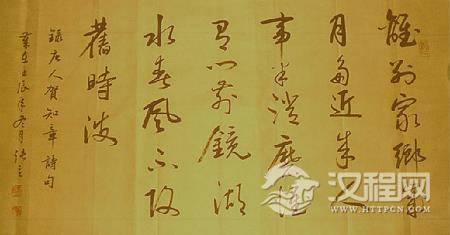 離別家鄉歲
月多近來人
事半消磨惟
有門前鏡湖
水春風不改
舊時波
錄唐人賀知章詩句
辰年冬月
汉程网
WWW.HTTPCN.COM